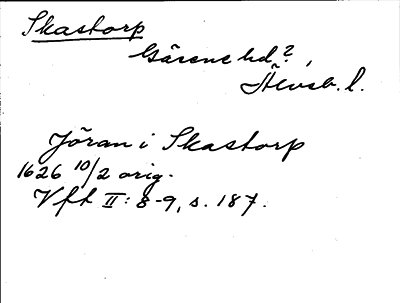 Skastorp
Gäsene hd?,
Älvsb. l.
Jöran i Skastorp
1626 10/2 orig.
Vft II: 8-9, s. 187.